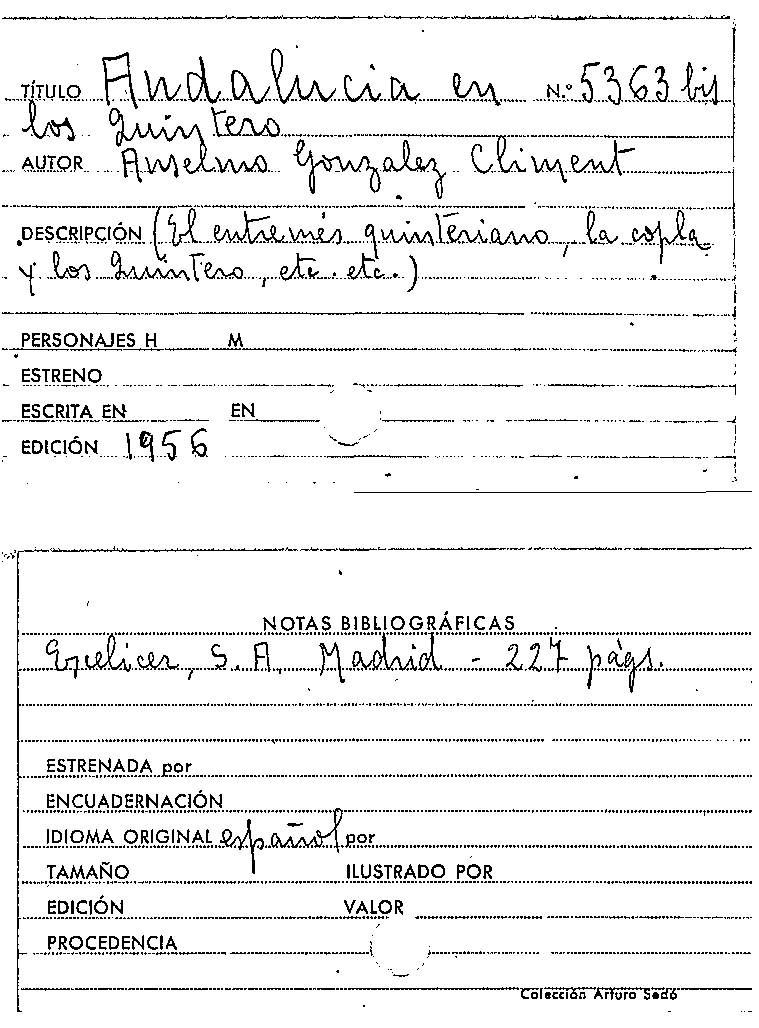 TÍTULO Andalucia en N.º 5363 bis
los Quintero
AUTOR Anselmo Gonzalez Climent
DESCRIPCIÓN (El entremés quinteriano, la copla
y los Quintero, etc. etc.)
PERSONAJES H M
ESTRENO
ESCRITA EN EN
EDICIÓN 1956
NOTAS BIBLIOGRÁFICAS
Escelicer, S. A. Madrid - 227 págs.
ESTRENADA por
ENCUADERNACIÓN
IDIOMA ORIGINAL español por
TAMAÑO ILUSTRADO POR
EDICIÓN VALOR
PROCEDENCIA
Colección Arturo Sedó